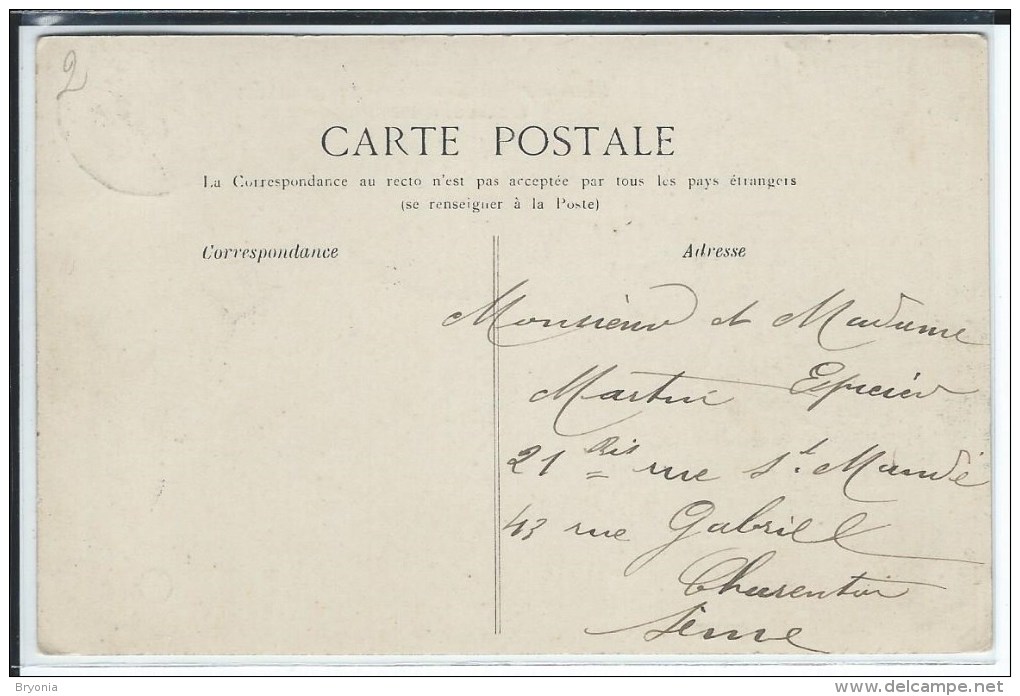 2
CARTE POSTALE
La Correspondance au recto n'est pas acceptée par tous les pays étrangers
(se renseigner à la Poste)
Correspondance
Adresse
Monsieur et Madame
Martin Epicier
21 Bis rue St. Mandé
43 rue Gabriell
Charenton
Seine
Bryonia
www.delcampe.net